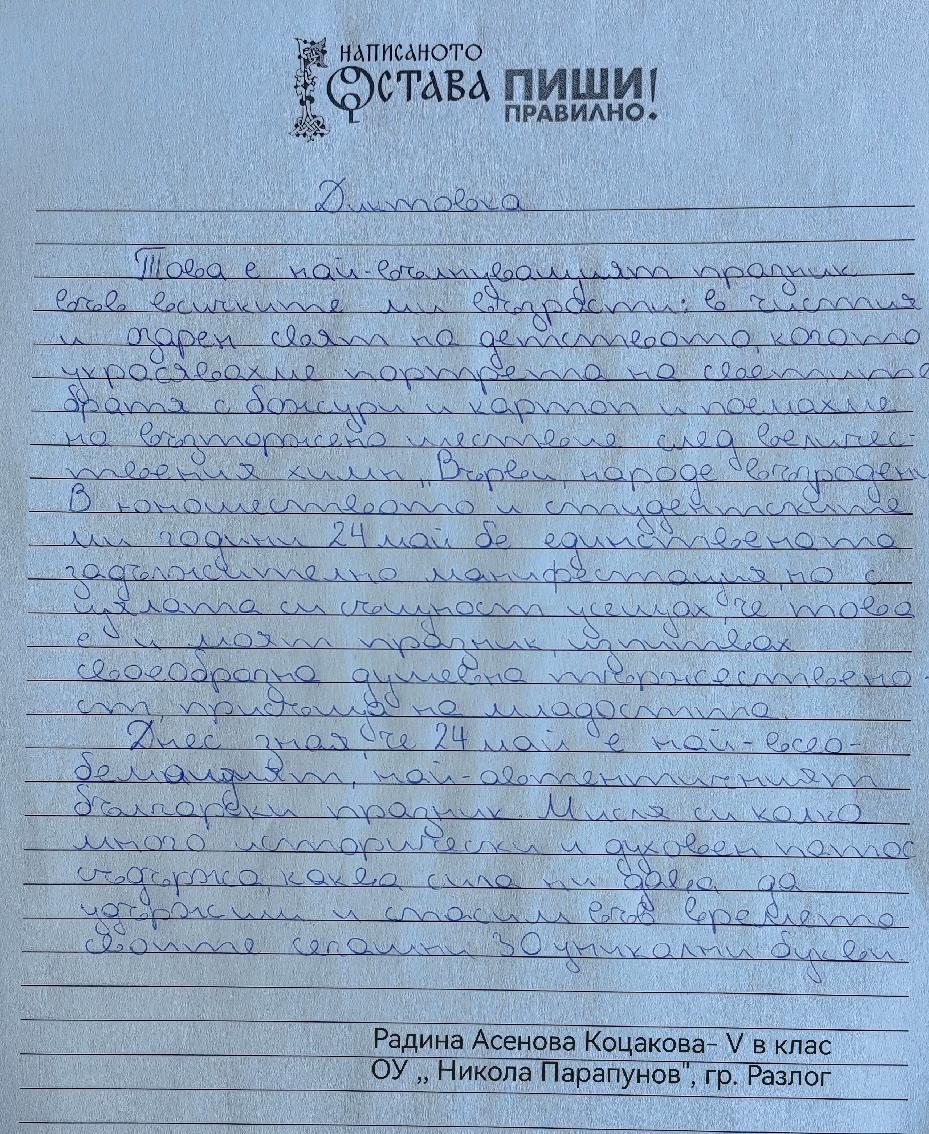 НАПИСАНОТО
ОСТАВА ПИШИ
ПРАВИЛНО!
Диктовка
Това е най-вълнуващият празник
във всичките ми възрасти: в чистия
и озарен свят на детството, когато
украсявахме портрета на светите
братя с божури и картон и поемахме
на възторжено шествие след величес-
твения химн „Върви, народе възродени
В юношеството и студентските
ми години 24 май бе единствената
задължително манифестация, но с
цялата си същност усещах, че това
е и моят празник, изпитвах
своеобразна душевна тържествено-
ст, придошла на младостта.
Днес зная, че 24 май е най-всео-
бемащият, най-автентичният
български празник. Мисля си колко
много исторически и духовен патос
съдържа, каква сила ни дава да
удържим и спасим във времето
своите сегашни 30 уникални букви.
Радина Асенова Коцакова- V в клас
ОУ ,, Никола Парапунов", гр. Разлог